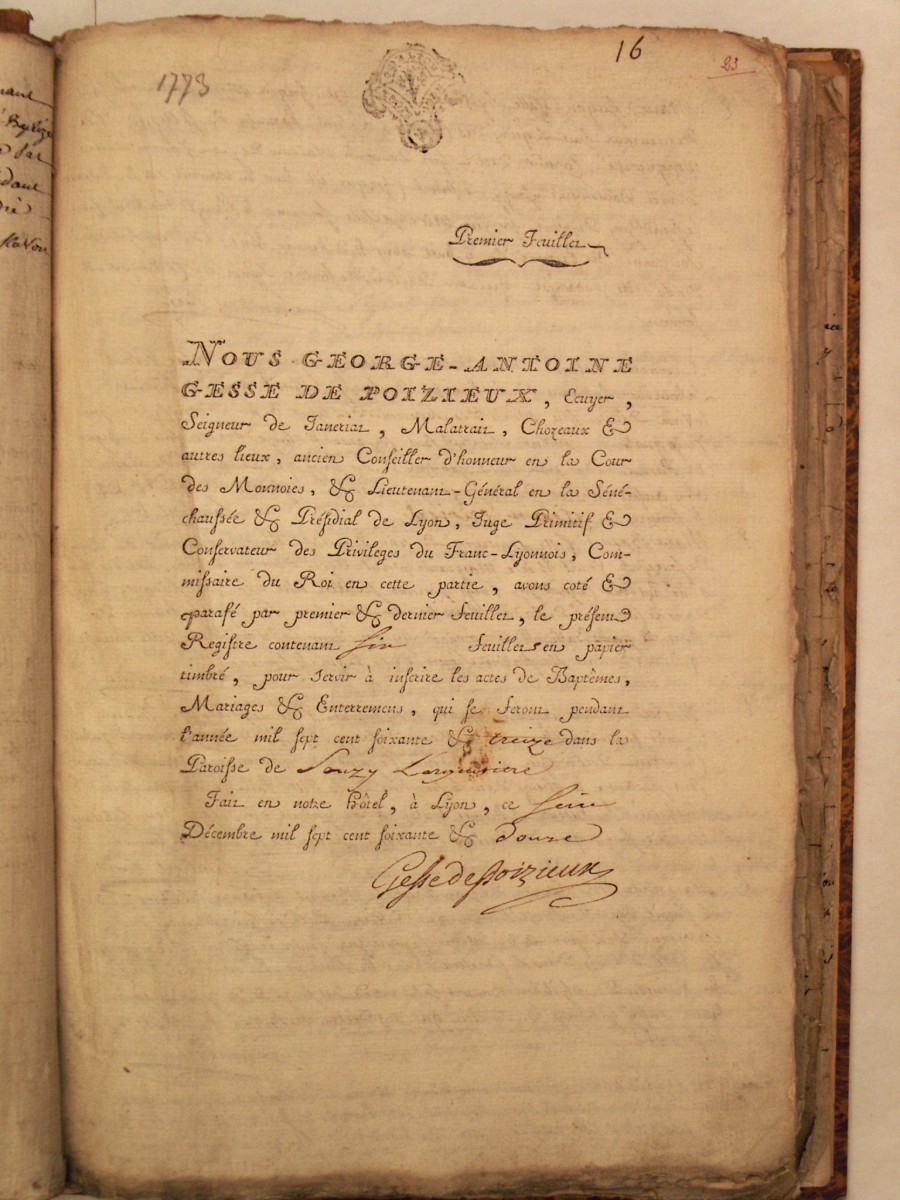 1773
16
23
Premier Feuillet
NOUS GEORGE-ANTOINE
GESSE DE POIZIEUX, Ecuyer,
Seigneur de Janeriat, Malatrait, Chozeaux &
autres lieux, ancien Conseiller d'honneur en la Cour
des Monnoies, & Lieutenant-Général en la Séné-
chaussée & Présidial de Lyon, Juge Primitif &
Conservateur des Privileges du Franc-Lyonnois, Com-
missaire du Roi en cette partie, avons coté &
parafé par premier & dernier feuillet, le présent
Registre contenant six feuillets en papier
timbré, pour servir à inscrire les actes de Baptêmes,
Mariages & Enterremens, qui se feront pendant
l'année mil sept cent soixante & treize dans la
Paroisse de Souzy Largentiere
Fait en notre hôtel, à Lyon, ce
Décembre mil sept cent soixante & douze
Gesse de Poizieux